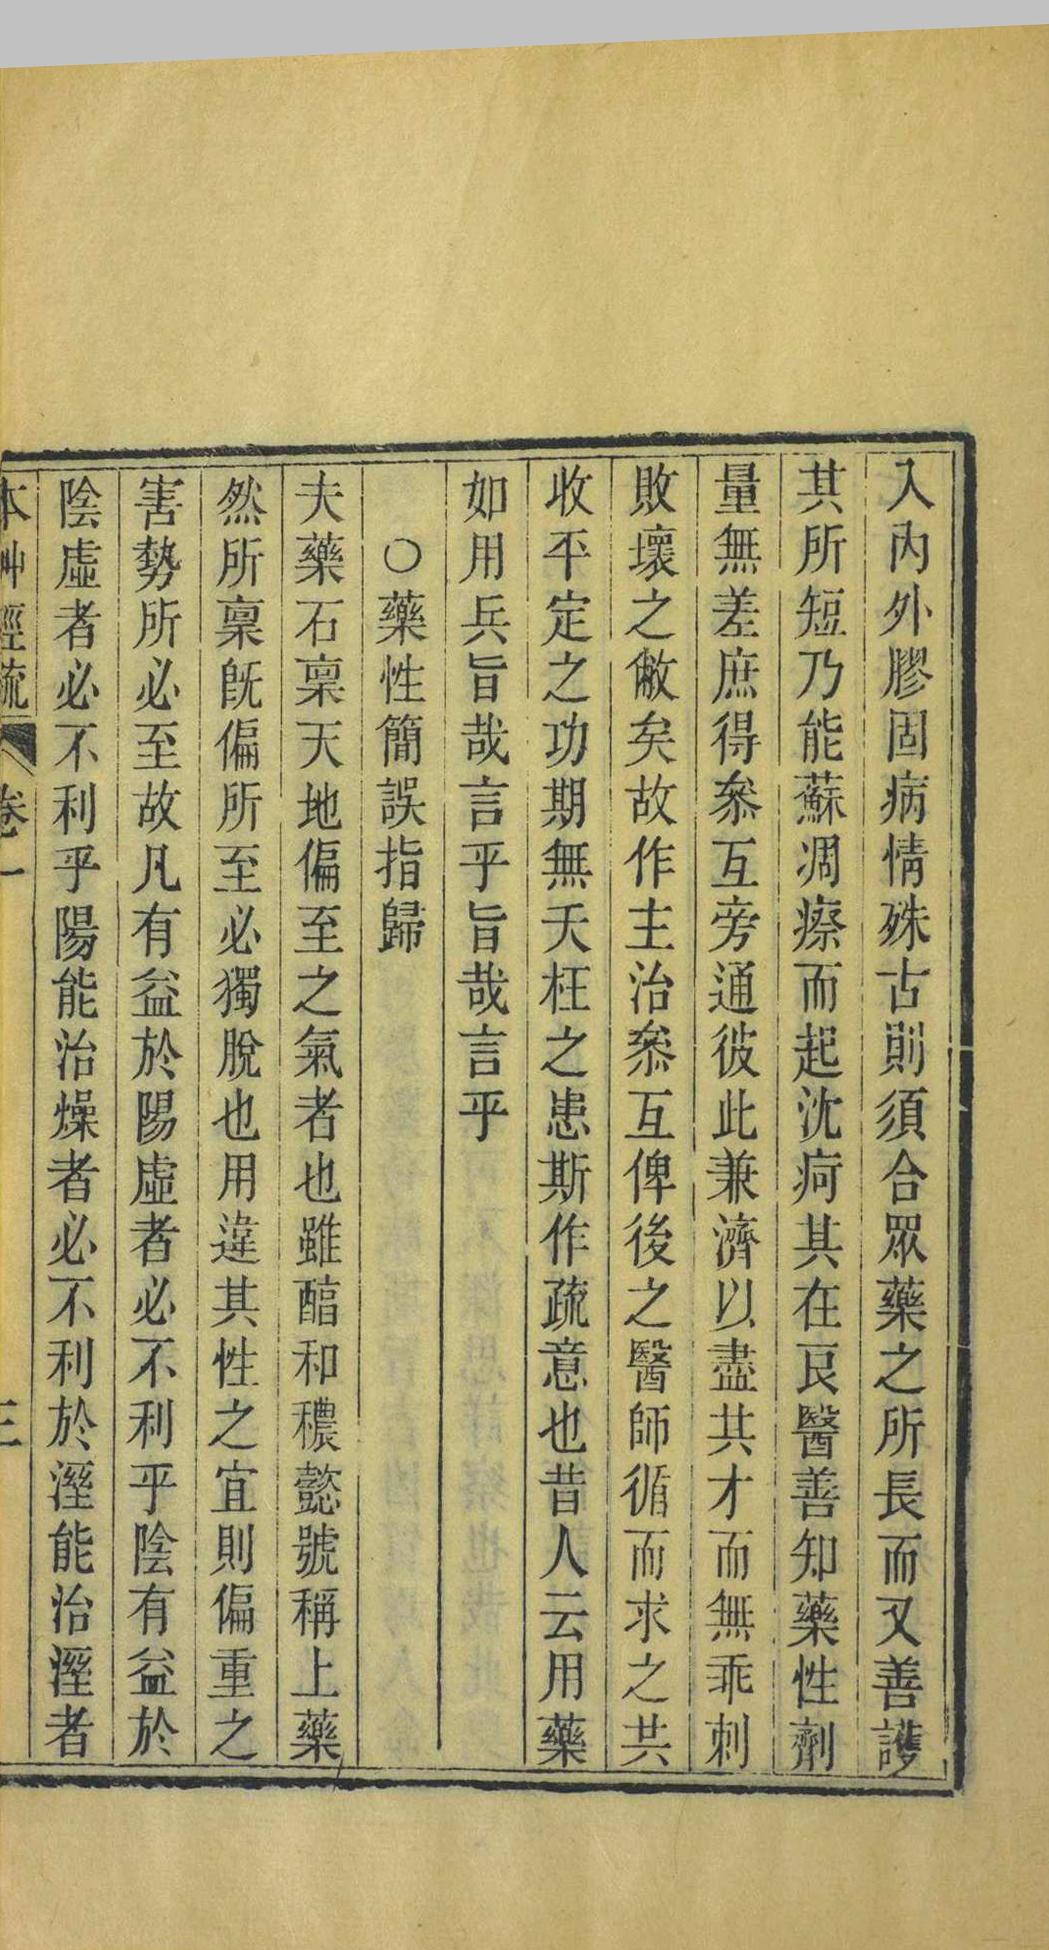 入內外膠固病情殊古則須合眾藥之所長而又善護
其所短乃能蘇凋瘵而起沈疴其在良醫善知藥性劑
量無差庶得叅互旁通彼此兼濟以盡其才而無乖刺
敗壞之敝矣故作主治叅互俾後之醫師循而求之共
收平定之功期無夭枉之患斯作疏意也昔人云用藥
如用兵旨哉言乎旨哉言乎
○藥性簡誤指歸
夫藥石稟天地偏至之氣者也雖醕和穠懿號稱上藥
然所稟旣偏所至必獨脫也用違其性之宜則偏重之
害勢所必至故凡有益於陽虛者必不利乎陰有益於
陰虛者必不利乎陽能治燥者必不利於溼能治溼者
本艸經疏 卷一 三